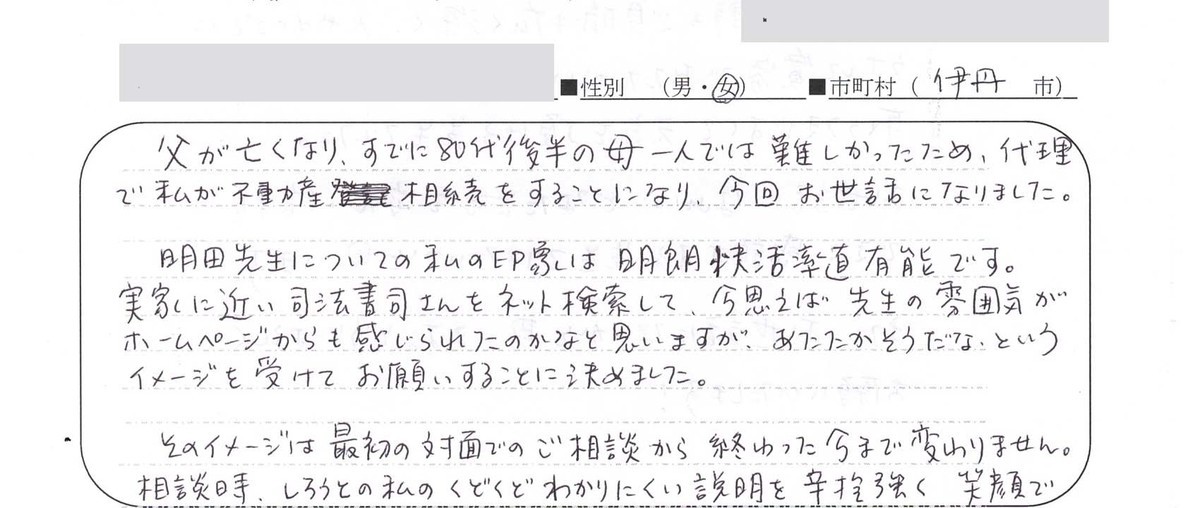 ■性別 (男・女) ■市町村 ( 伊丹 市)
父が亡くなり、すでに80代後半の母一人では難しかったため、代理
で私が不動産相続をすることになり、今回お世話になりました。
明田先生についての私の印象は明朗快活率直有能です。
実家に近い司法書司さんをネット検索して、今思えば先生の雰囲気が
ホームページからも感じられたのかなと思いますが、あたたかそうだな、という
イメージを受けてお願いすることに決めました。
そのイメージは最初の対面でのご相談から終わった今まで変わりません。
相談時、しろうとの私のくどくどわかりにくい説明を辛抱強く笑顔で